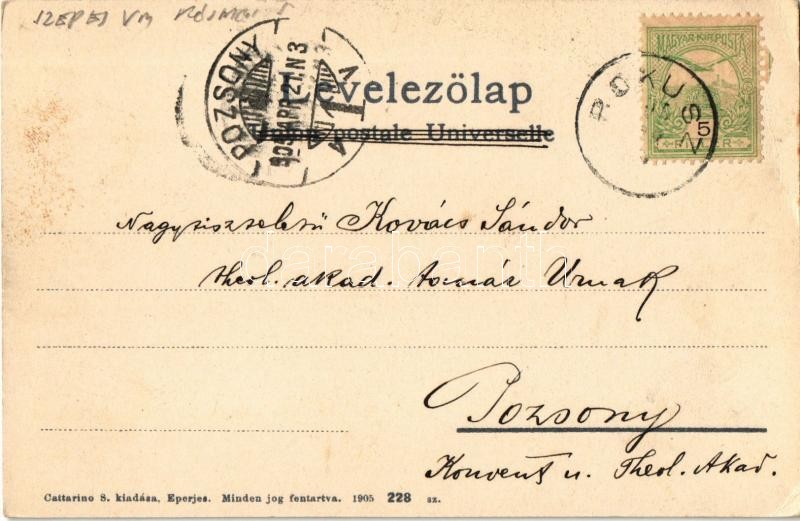 SZEPES VM
POZSONY
905 APR 21. N 3
Levelezőlap
Union postale Universelle
POKUSZ
MAGYAR KIR. POSTA
5
Nagytiszteletű Kovács Sándor
theol. akad. tanár Úrnak
darabanth
Pozsony
Konvent u. Theol. Akad.
Cattarino S. kiadása, Eperjes. Minden jog fentartva. 1905 228 sz.